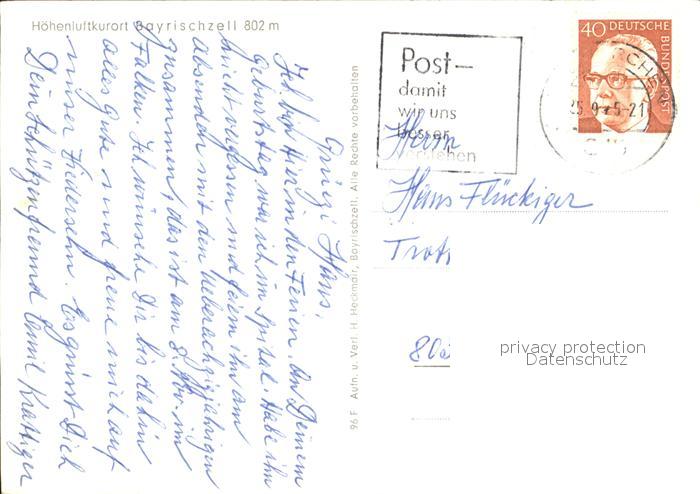 Höhenluftkurort Bayrischzell 802 m
Grüezi Hans.
Ich bin hier in den Ferien. An Deinem
Geburtstag war ich im Spital. Habe ihn
nicht vergessen und feiern ihn am
Absenden mit den Ueberachzigjährigen
zusammt, das ist am 8. Nov. im
Falken. Ich wünsche Dir bis dahin
alles gute und freue mich auf
unser Wiedersehn. Es grüsst Dich
Dein Schützenfreund Emil Krattiger
96 F Aufn. u. Verl. H. Heckmair, Bayrischzell. Alle Rechte vorbehalten
Post—
damit
wir uns
besser
verstehen
40 DEUTSCHE
BUNDESPOST
Herrn
Hans Flückiger
privacy protection
Datenschutz